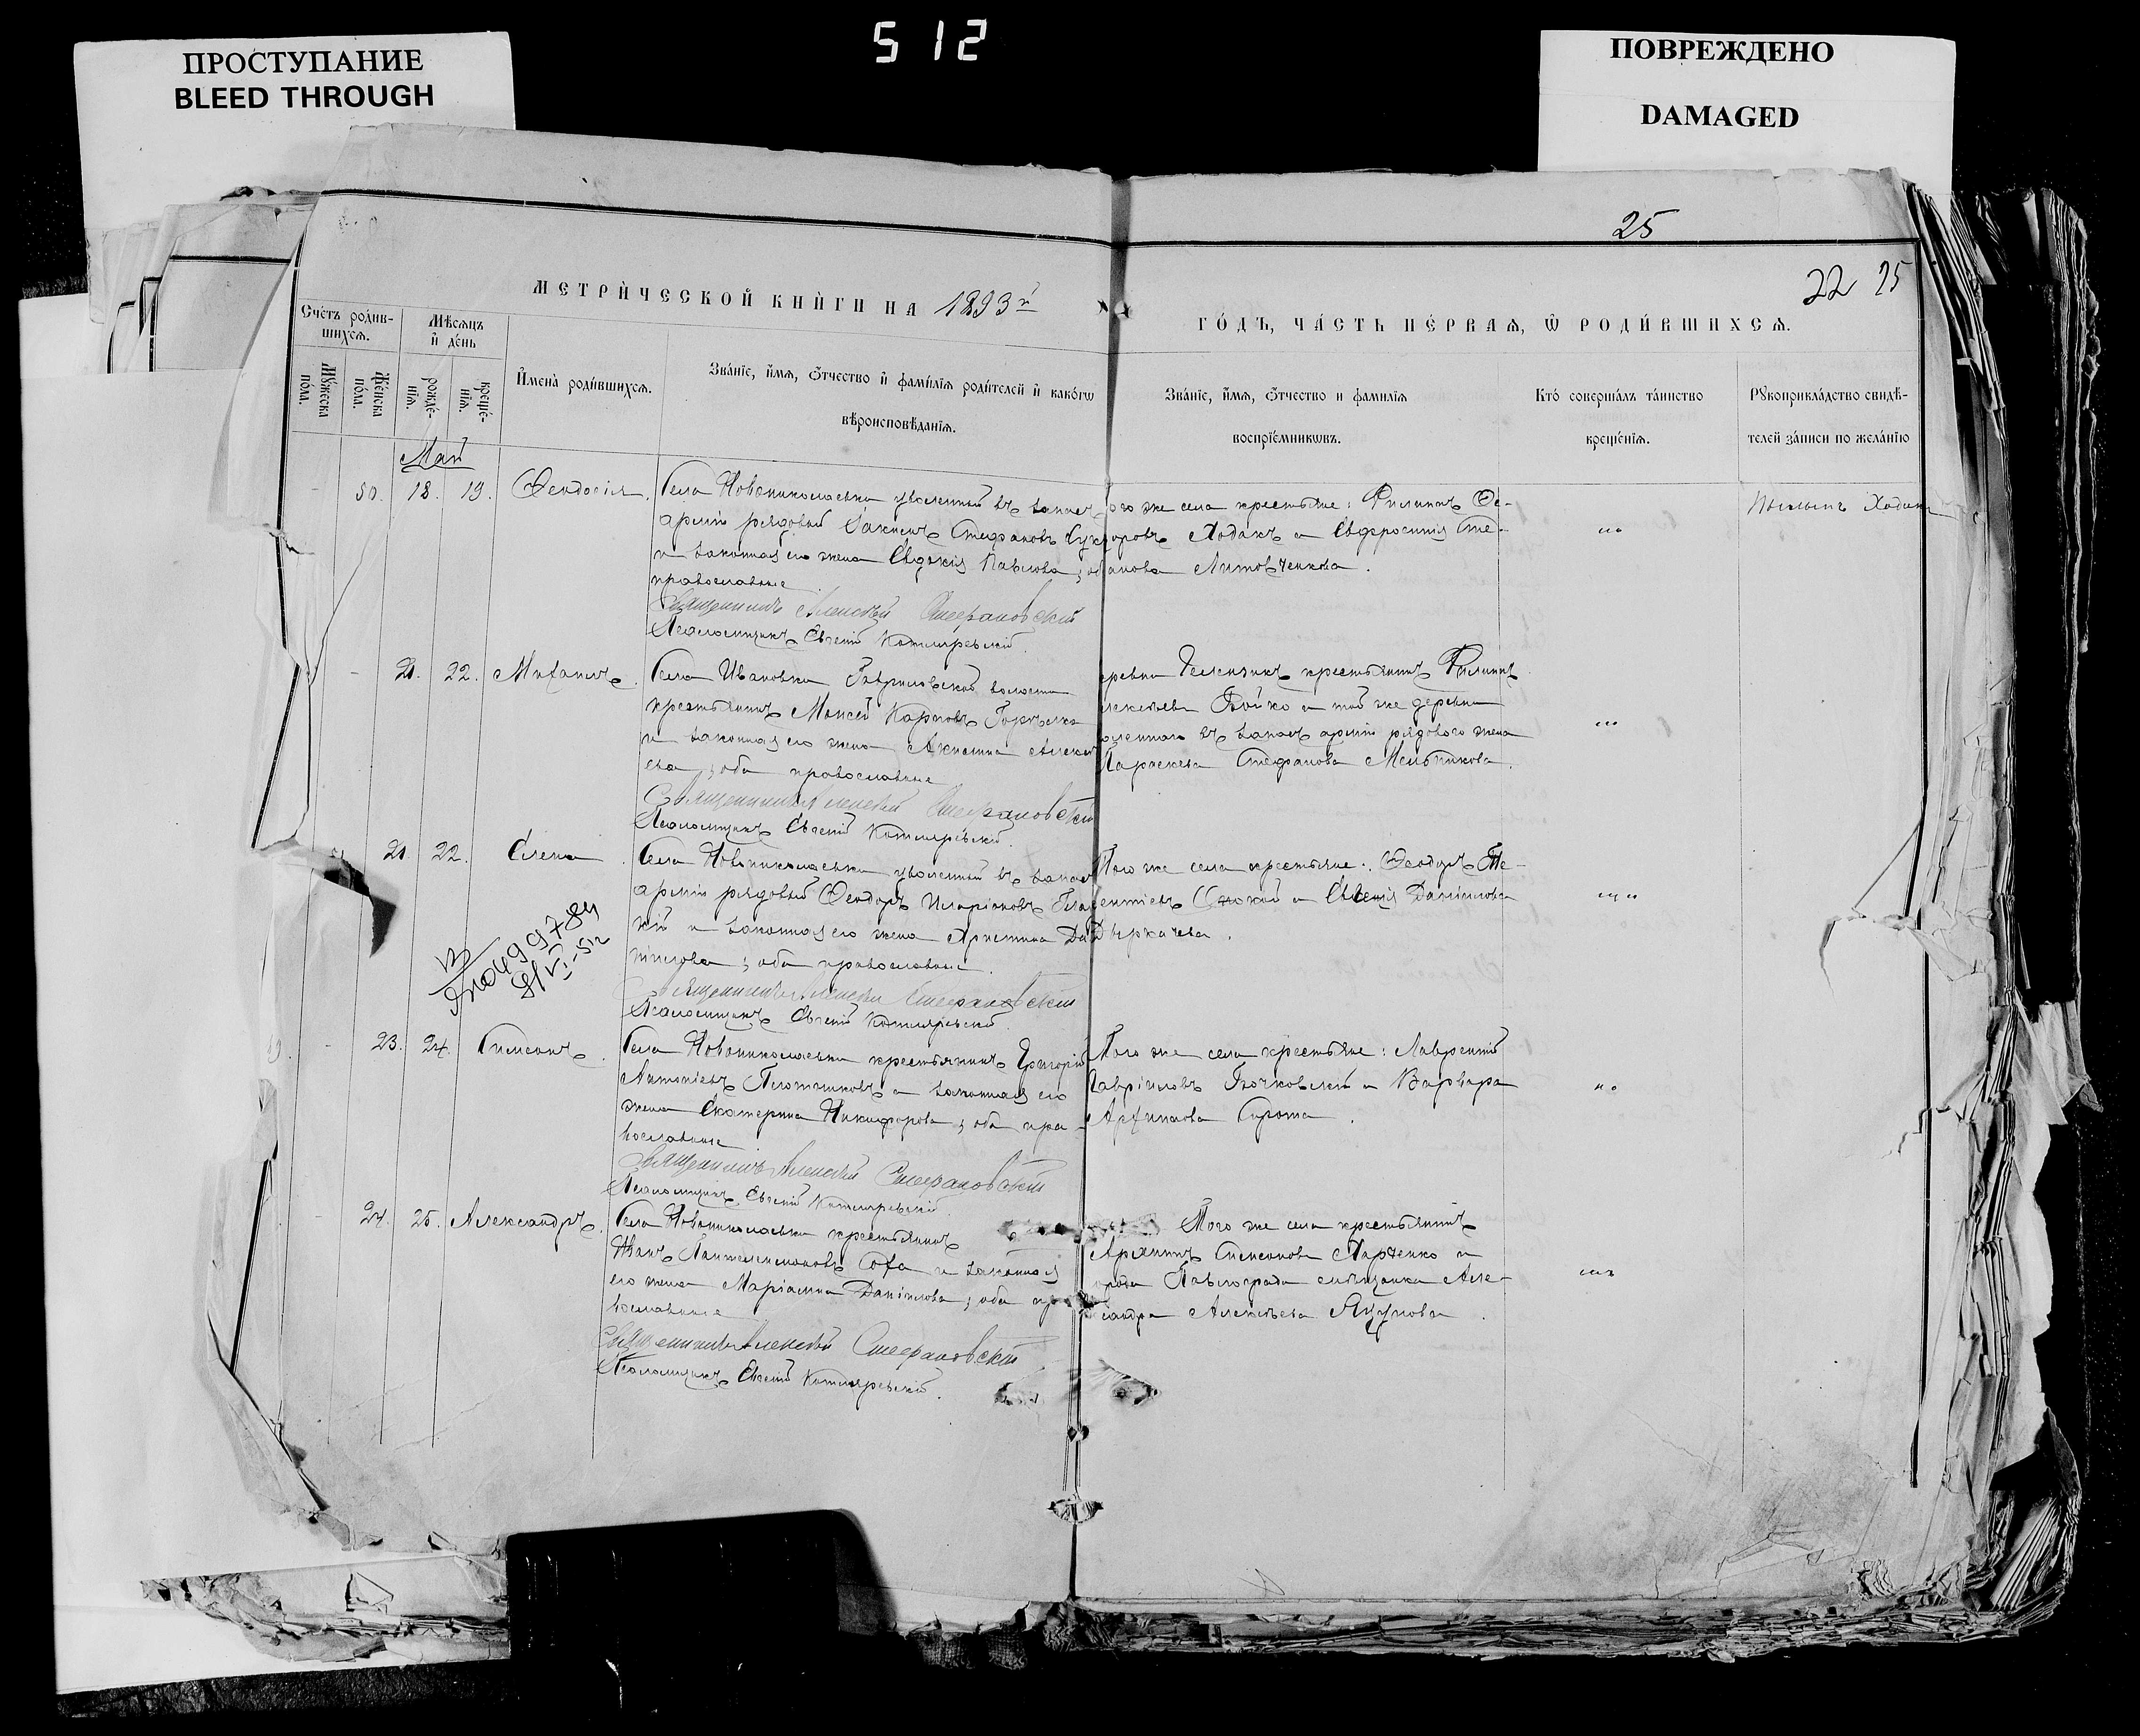 ПРОСТУПАНИЕ
BLEED THROUGH
512
ПОВРЕЖДЕНО
DAMAGED
25
22 25
МЕТРИ́ЧЕСКОЙ КНИ́ГИ НА 1893й
ГО́ДЪ, ЧА́СТЬ ПЕ́РВАѦ, Ѿ РОДИ́ВШИХСѦ.
Сче́тъ роди́в-
шихсѧ.
Мѣ́сѧцъ
и де́нь
Мꙋ́жеска
по́ла.
Же́нска
по́ла.
рожде́-
нїѧ.
креще́-
нїѧ.
И҆мена̀ роди́вшихсѧ.
Зва́нїе, и҆́мѧ, ѻ҆́тчество и҆ фами́лїѧ роди́телей и҆ како́гѡ
вѣроисповѣ́данїѧ.
Зва́нїе, и҆́мѧ, ѻ҆́тчество и фами́лїѧ
воспрїе́мникѡвъ.
Кто́ соверша́лъ та́инство
креще́нїѧ.
Рꙋкоприкла́дство свидѣ́-
телей за́писи по жела́нїю
Май
50. 18. 19. Феодосія.
Села Новониколаевки уволенный въ запасъ
арміи рядовый Іакимъ Стефановъ
и законная его жена Евдокія Павлова; об
православные
Священникъ Алексѣй Стефановскій
Псаломщикъ Евгеній Котляревскій.
ого же села крестьяне: Филиппъ Ѳе-
оровъ Ходакъ и Евфросинія Сте-
анова Литовченкова.
21. 22. Михаилъ.
Села Ивановки Гавриловской волости
крестьянинъ Моисей Карповъ
и законная его жена Акилина Алексѣ
ева; оба православные
Священникъ Алексѣй Стефановскій
Псаломщикъ Евгеній Котляревскій.
еревни крестьянинъ Филиппъ
лексѣевъ Бойко и той же деревни
оленнаго въ запасъ арміи рядового жена
Параскева Стефанова Мельникова.
21. 22. Елена.
Села Новониколаевки уволенный въ запасъ
арміи рядовый Феодоръ Иларіоновъ
кій и законная его жена Христина Да
ніилова; оба православные.
Священникъ Алексѣй Стефановскій
Псаломщикъ Евгеній Котляревскій.
Того же села крестьяне: Феодоръ Те-
рентіевъ и Евгенія Даніилова
Дыркачева.
23. 24. Симеонъ.
Села Новониколаевки крестьянинъ Григорій
Антоніевъ Плотниковъ и законная его
жена Екатерина Никифорова; оба пра-
вославные
Священникъ Алексѣй Стефановскій
Псаломщикъ Евгеній Котляревскій.
Того же села крестьяне: Лаврентій
Гавріиловъ Бочковскій и Варвара
Архипова Сирота.
24. 25. Александръ.
Села Новониколаевки крестьянинъ
Иванъ Пантелеимоновъ Соха и законная
его жена Маріамна Даніилова; оба пра
вославные
Священникъ Алексѣй Стефановскій
Псаломщикъ Евгеній Котляревскій.
Того же села крестьянинъ
Симеоновъ Марченко и
орода Павлограда мѣщанка Але-
ксандра Алексѣева